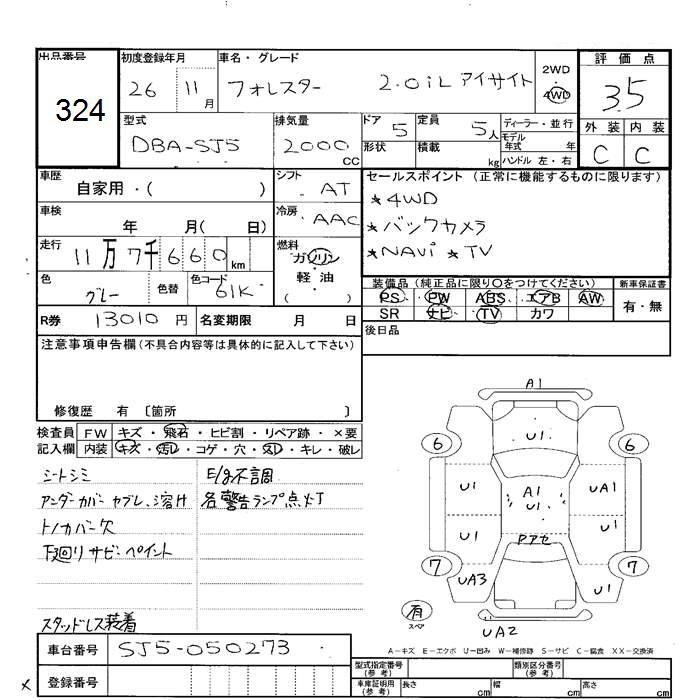 出品番号
324
初度登録年月
26 11月
車名・グレード
フォレスター 2.0iL アイサイト
2WD
4WD
評価点
3.5
外装 内装
C C
型式
DBA-SJ5
排気量
2000 CC
ドア 5
定員 5人
形状
積載 kg
ディーラー・並行
モデル年式 年
ハンドル 左・右
車歴
自家用・( )
シフト
AT
車検
年 月( 日)
冷房
AAC
走行
11万7千660km
燃料
ガソリン
軽油
( )
色
グレー
色替
色コード
61K
R券 13010円
名変期限 月 日
セールスポイント (正常に機能するものに限ります)
★4WD
★バックカメラ
★NAVi ★TV
装備品 (純正品に限り〇をつけてください)
新車保証書
PS PW ABS エアB AW
SR ナビ TV カワ
有・無
後日品
注意事項申告欄(不具合内容等は具体的に記入して下さい)
修復歴 有 〔箇所 〕
検査員記入欄
FW キズ・飛石・ヒビ割・リペア跡・×要
内装 キズ・汚レ・コゲ・穴・スレ・キレ・破レ
シートシミ
アンダーカバーヤブレ、溶け
トノカバー欠
下廻りサビ・ペイント
スタッドレス装着
E/g不調
各警告ランプ点灯
A1
U1
6 6
U1
A1
U1
UA1
U1
U1
Pアセ
7 7
UA3
U1
有
スペア
UA2
A-キズ E-エクボ U-凹み W-補修跡 S-サビ C-腐食 XX-交換済
車台番号 SJ5-050273
登録番号
型式指定番号(参考)
類別区分番号(参考)
車庫証明用(参考)
長さ cm
幅 cm
高さ cm
×